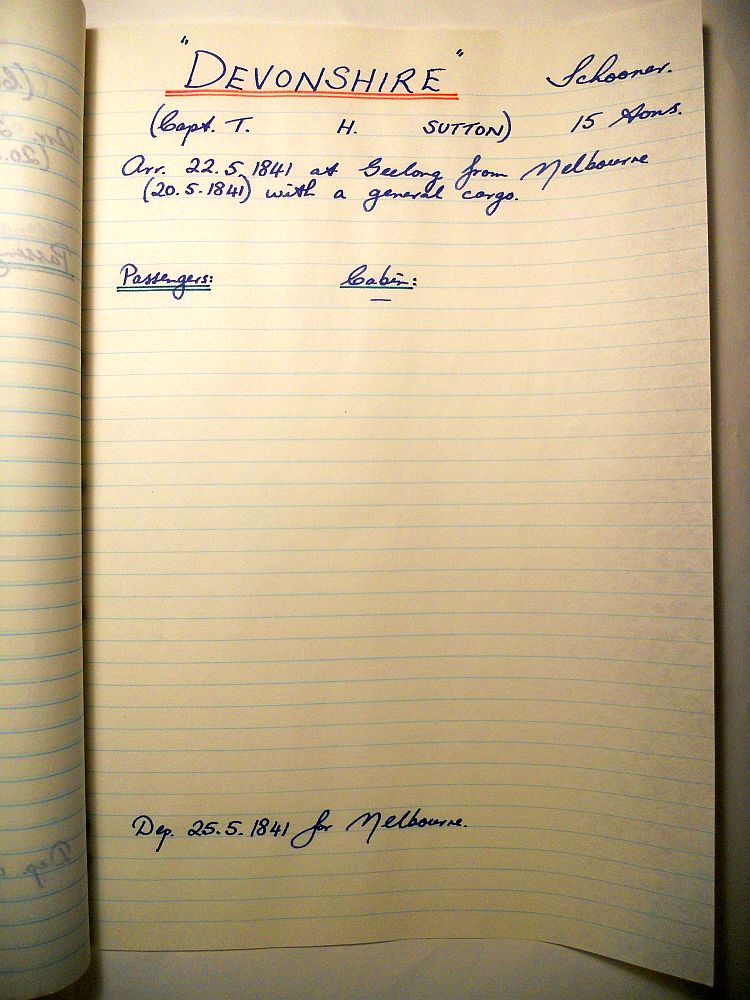 "DEVONSHIRE" Schooner.
(Capt. T. H. SUTTON) 15 tons.
Arr. 22.5.1841 at Geelong from Melbourne
(20.5.1841) with a general cargo.
Passengers: Cabin:
—
Dep. 25.5.1841 for Melbourne.